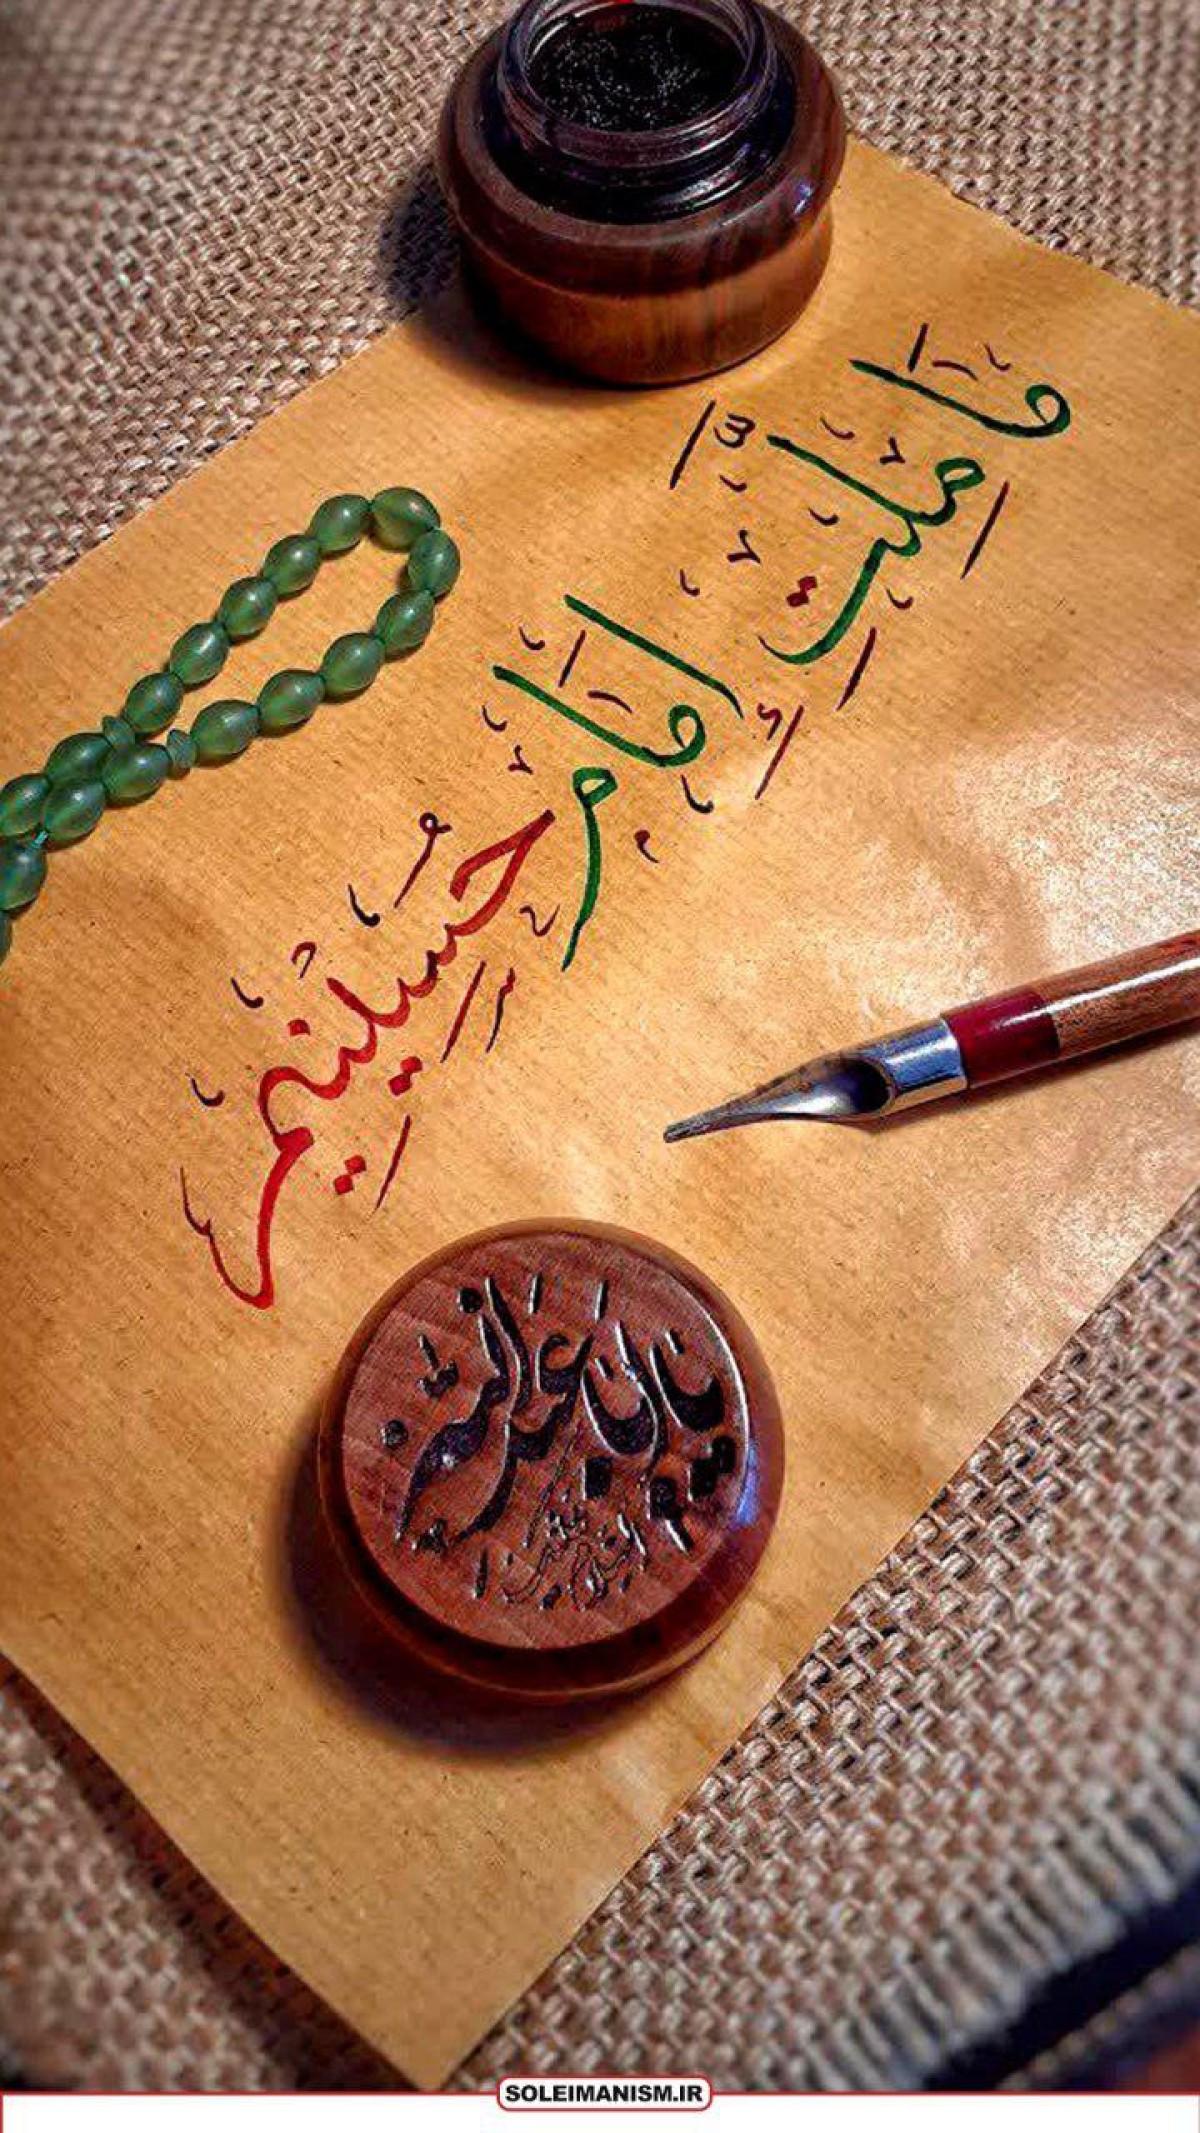 ما ملت امام حسینیم
یا اباعبدالله
SOLEIMANISM.IR